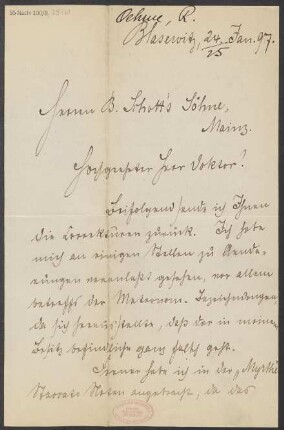 Oehme, R.
Blasewitz, 24. Jan. 97.
25
Herrn B. Schott's Söhne,
Mainz.
Hochgeehrter Herr Doktor!
Beifolgend sende ich Ihnen
die Correkturen zurück. Ich habe
mich an einigen Stellen zu Aende-
rungen veranlaßt gesehen, vor allem
betreffs der Metronom. Bezeichnungen
da sich herausstellte, daß der in meinem
Besitz befindliche ganz falsch geht.
Ferner habe ich in der
Noten angebracht, da das